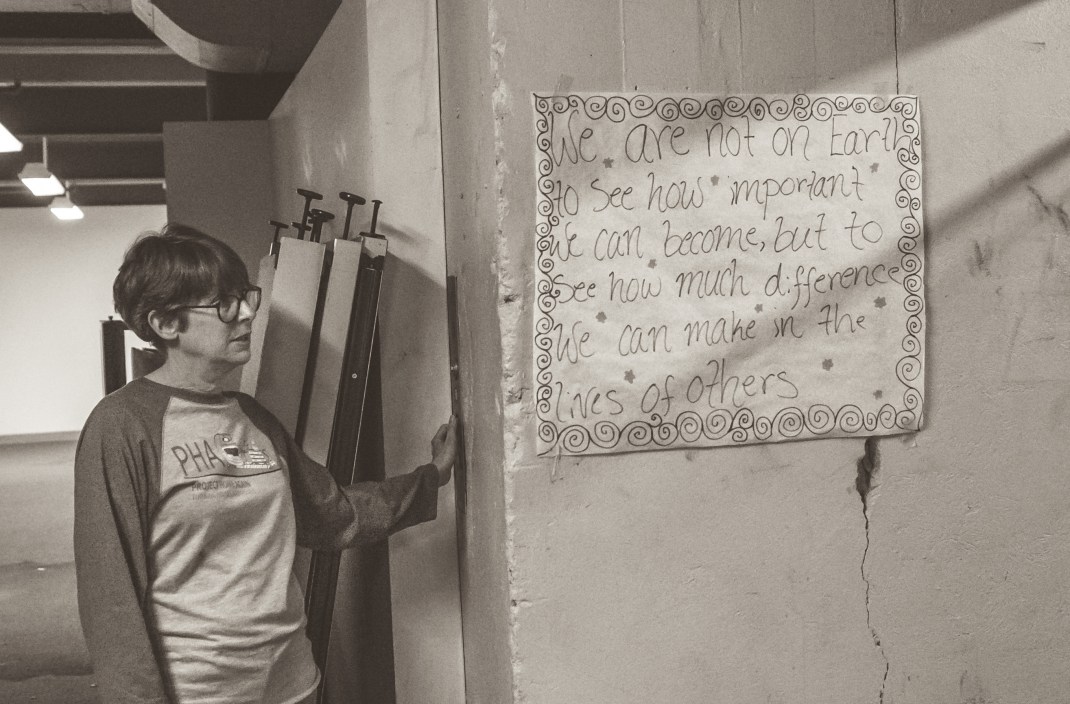 We are not on Earth
to see how important
We can become, but to
See how much difference
We can make in the
lives of others
PHA